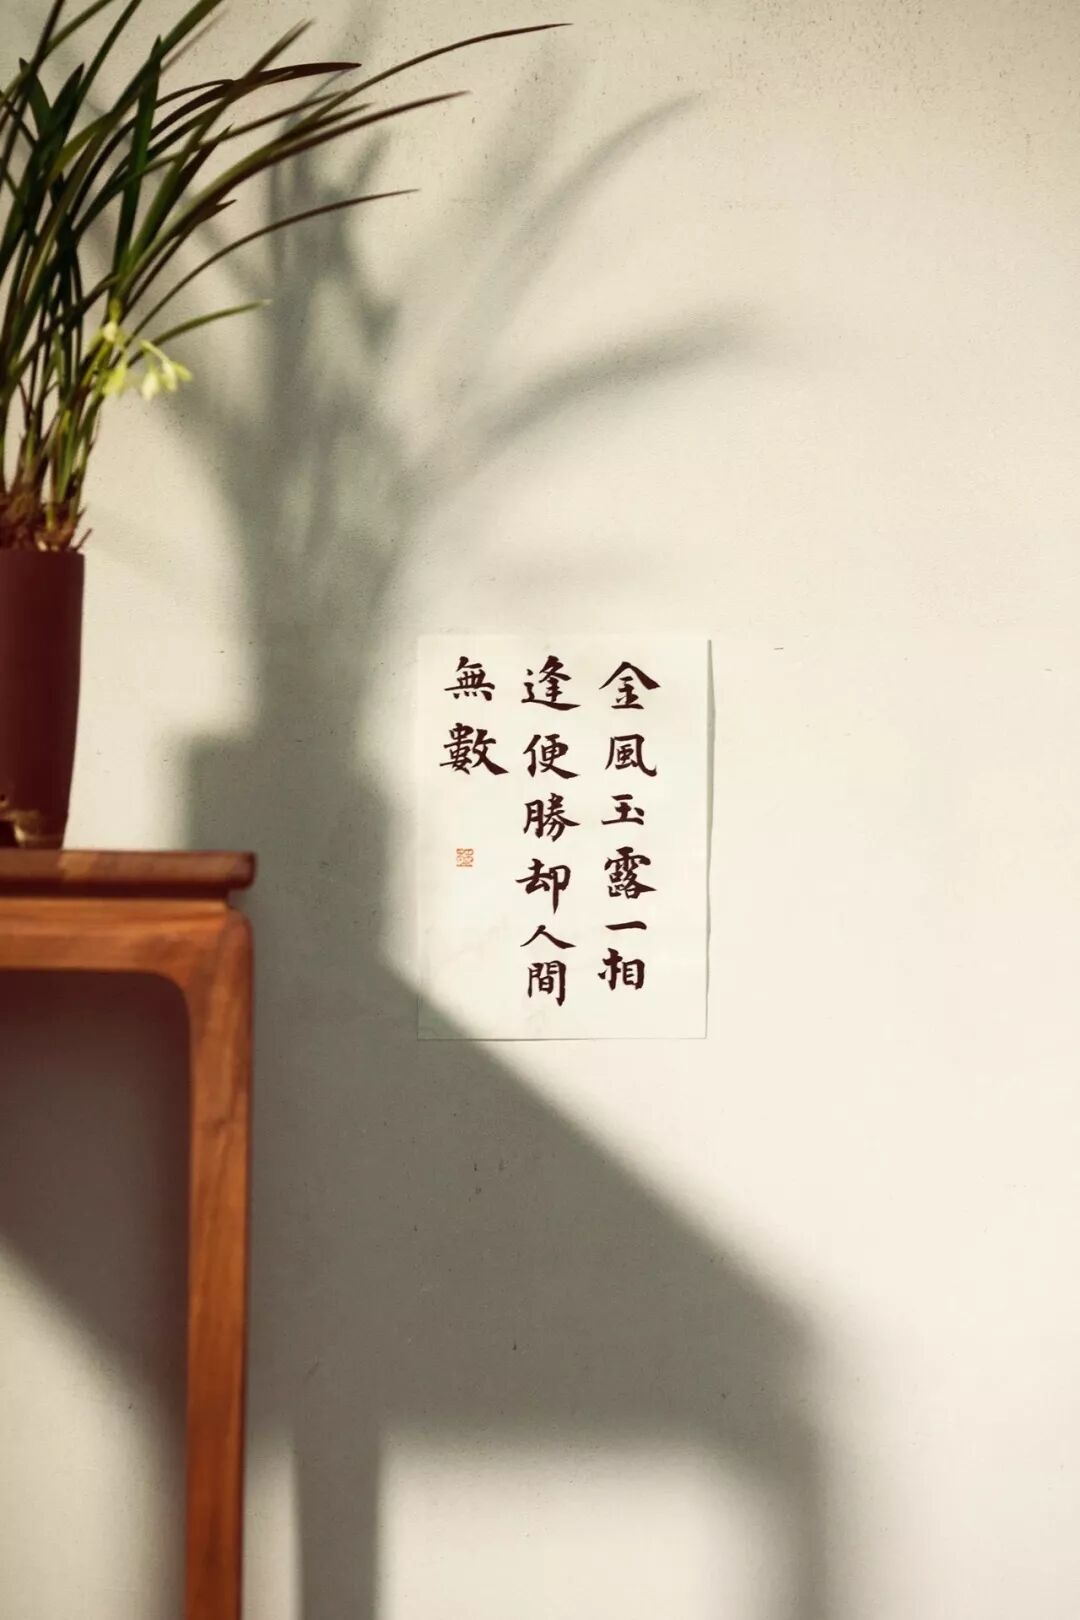 金風玉露一相
逢便勝却人間
無數